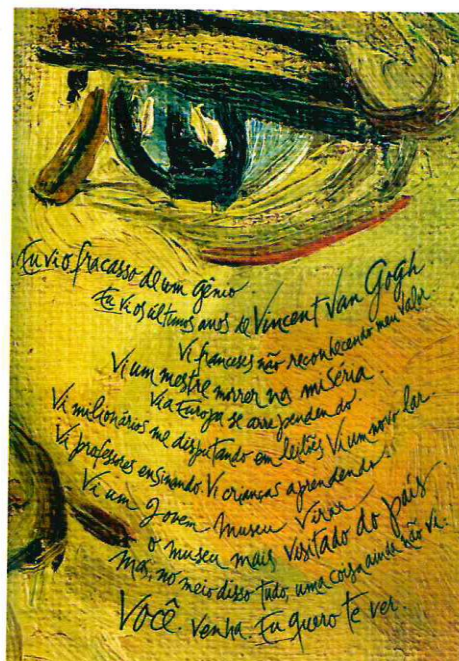 Eu vi o fracasso de um gênio.
Eu vi os últimos anos de Vincent Van Gogh.
Vi franceses não reconhecendo meu valor.
Vi um mestre morrer na miséria.
Vi a Europa se arrependendo.
Vi milionários me disputando em leilões. Vi um novo lar.
Vi profesores ensinando. Vi crianças aprendendo.
Vi um Jovem museu virar
o museu mais visitado do país.
Mas, no meio disso tudo, uma coisa ainda não vi:
Você. Venha. Eu quero te ver.